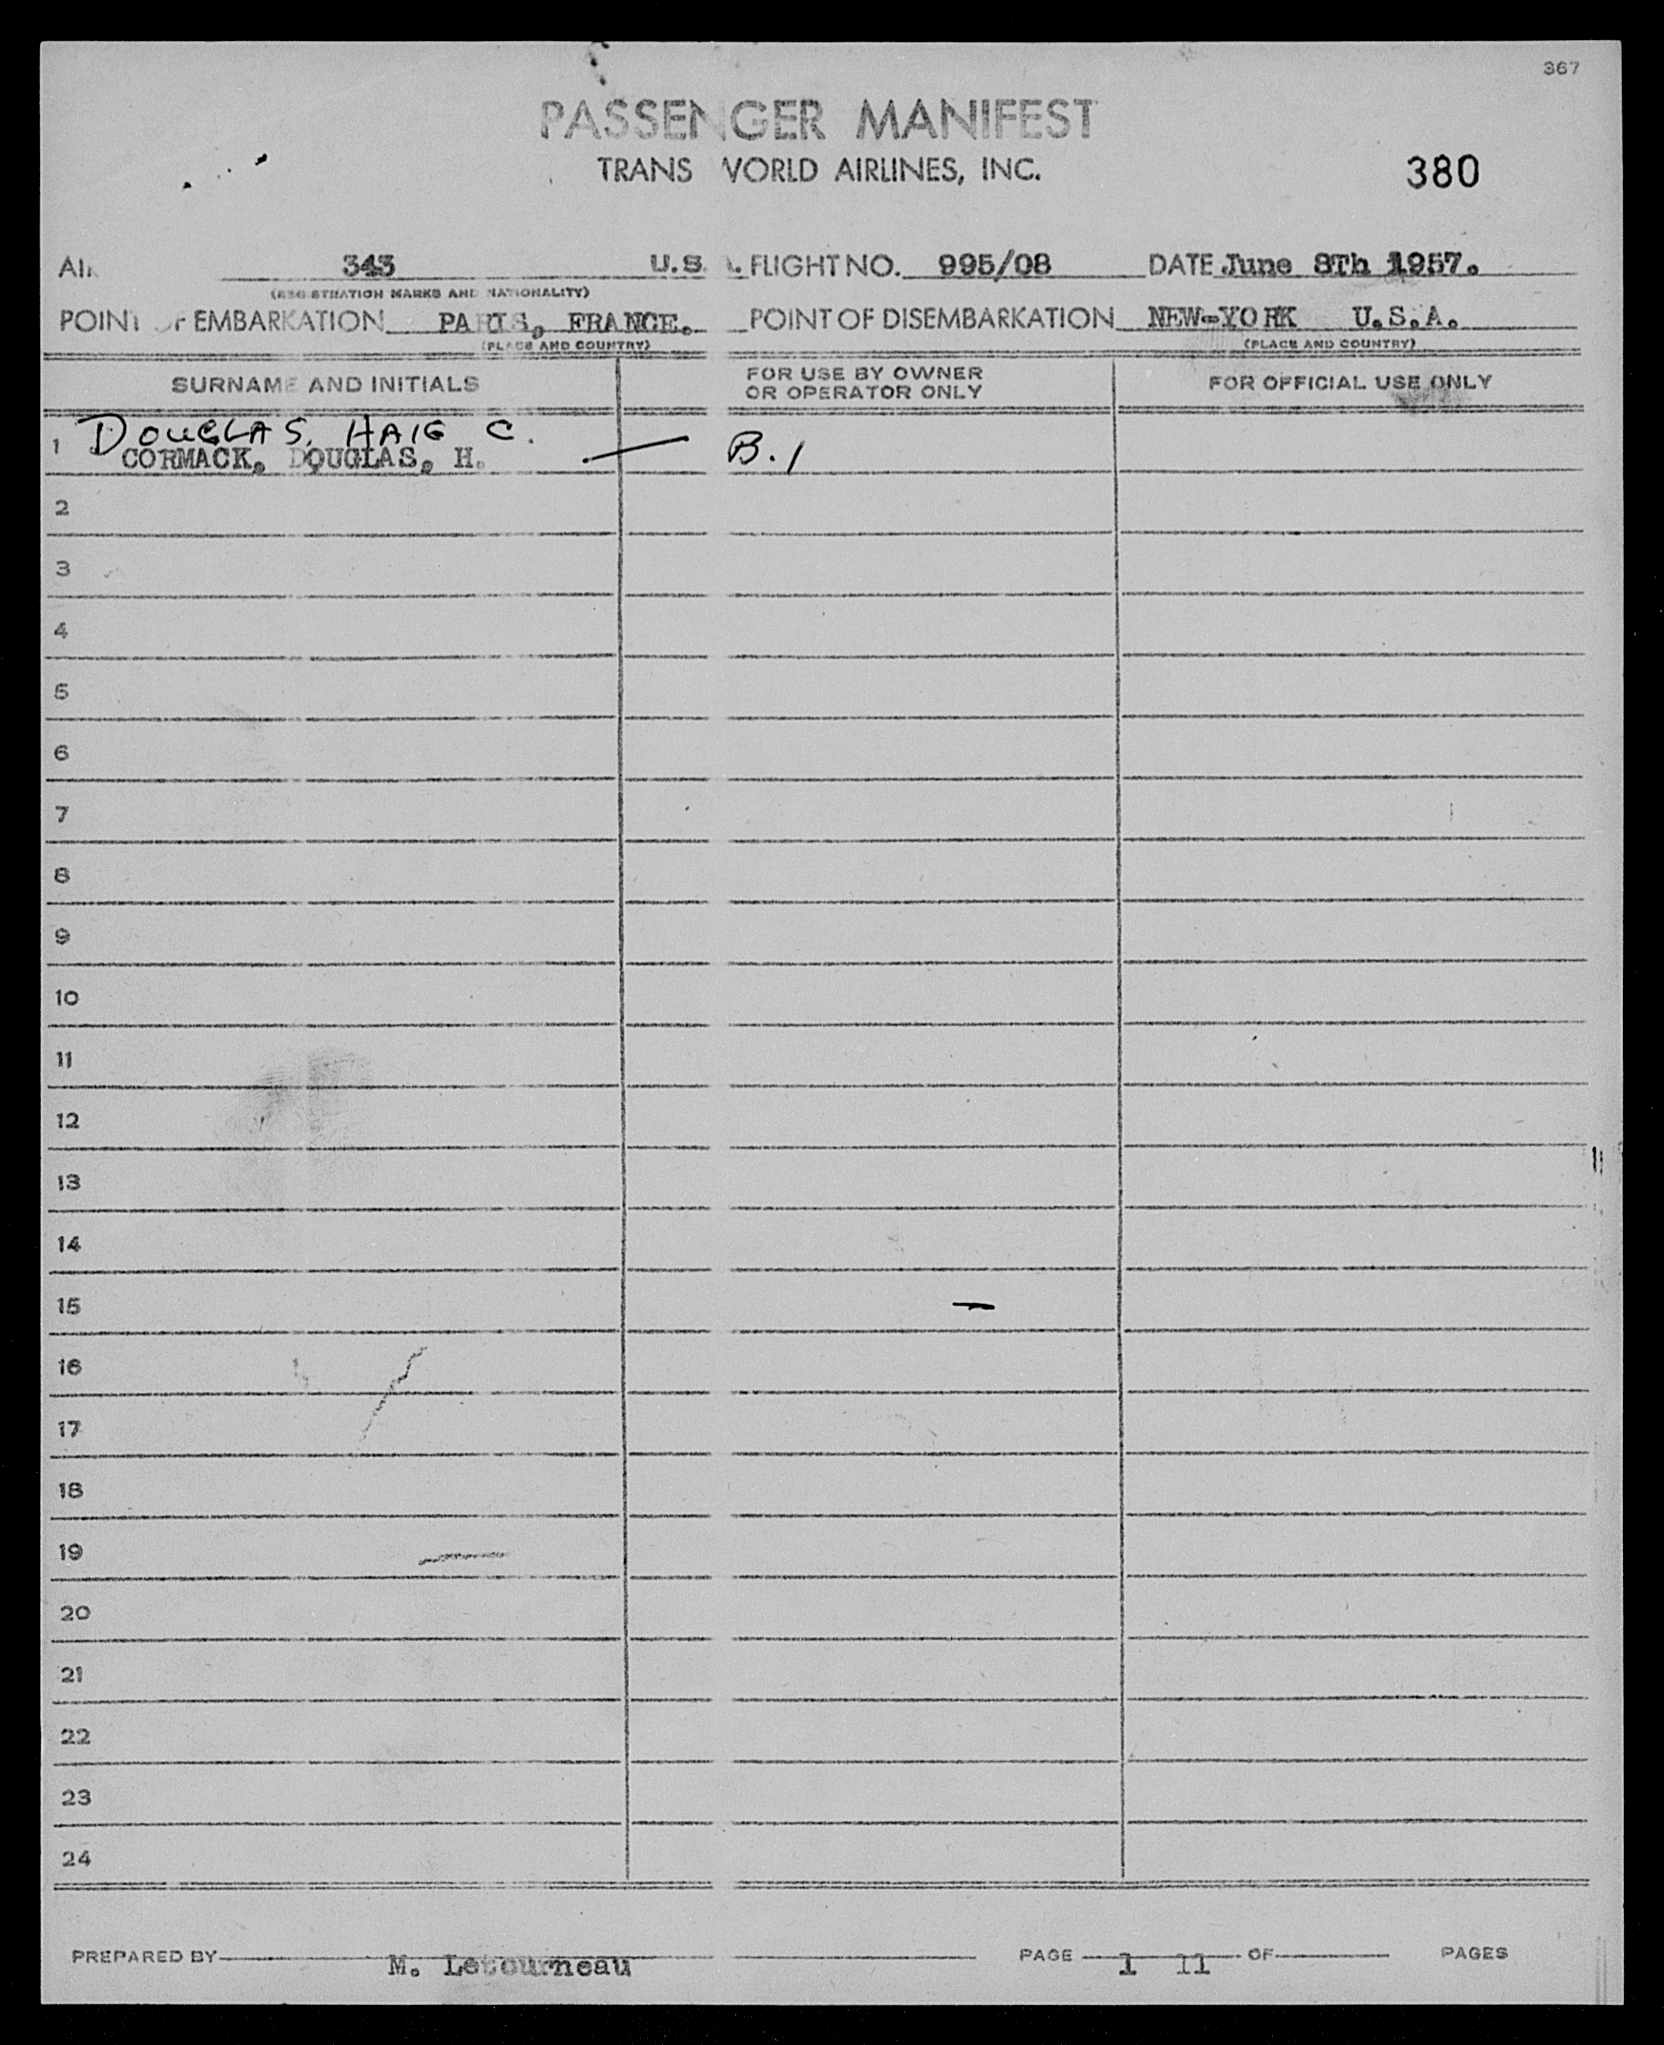 367
PASSENGER MANIFEST
TRANS WORLD AIRLINES, INC.
380
343 U.S. FLIGHT NO. 995/08 DATE June 8Th 1957.
(REGISTRATION MARKS AND NATIONALITY)
POINT OF EMBARKATION PARIS, FRANCE. POINT OF DISEMBARKATION NEW-YORK U.S.A.
(PLACE AND COUNTRY) (PLACE AND COUNTRY)
SURNAME AND INITIALS FOR USE BY OWNER OR OPERATOR ONLY FOR OFFICIAL USE ONLY
DOUGLAS, HAIG C.
1 CORMACK, DOUGLAS, H. — B.1
2
3
4
5
6
7
8
9
10
11
12
13
14
15 —
16
17
18
19
20
21
22
23
24
PREPARED BY M. Letourneau PAGE 1 11 OF PAGES